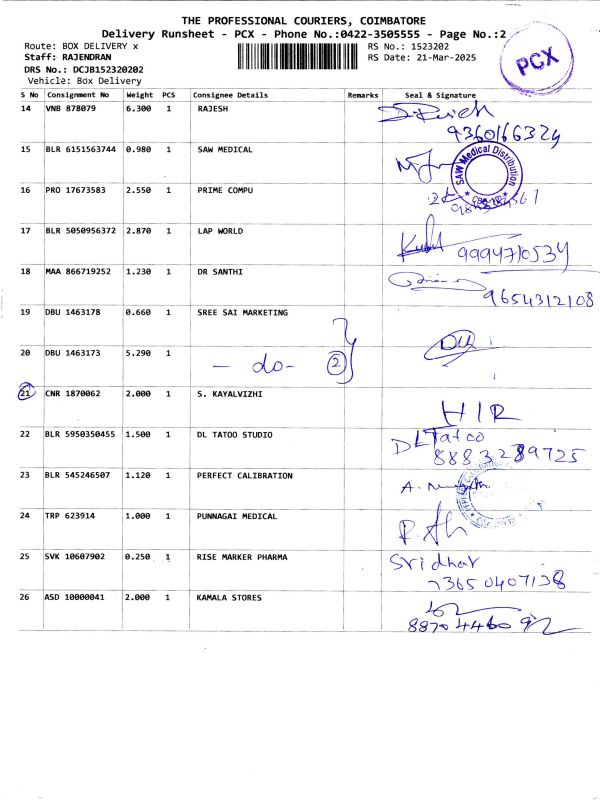 THE PROFESSIONAL COURIERS, COIMBATORE
Delivery Runsheet - PCX - Phone No.:0422-3505555 - Page No.:2
Route: BOX DELIVERY x RS No.: 1523202
Staff: RAJENDRAN RS Date: 21-Mar-2025
DRS No.: DCJB152320202
Vehicle: Box Delivery
PCX
S No Consignment No Weight PCS Consignee Details Remarks Seal & Signature
14 VNB 878079 6.300 1 RAJESH
9360166324
15 BLR 6151563744 0.980 1 SAW MEDICAL
SAW Medical Distribution
16 PRO 17673583 2.550 1 PRIME COMPU
17 BLR 5050956372 2.870 1 LAP WORLD
9994710534
18 MAA 866719252 1.230 1 DR SANTHI
9654312108
19 DBU 1463178 0.660 1 SREE SAI MARKETING
20 DBU 1463173 5.290 1 - do - 2
21 CNR 1870062 2.000 1 S. KAYALVIZHI
HIR
22 BLR 5950350455 1.500 1 DL TATOO STUDIO DL Tatoo
8883289725
23 BLR 545246507 1.120 1 PERFECT CALIBRATION
24 TRP 623914 1.000 1 PUNNAGAI MEDICAL
25 SVK 10607902 0.250 1 RISE MARKER PHARMA Sridhar
73650407138
26 ASD 10000041 2.000 1 KAMALA STORES